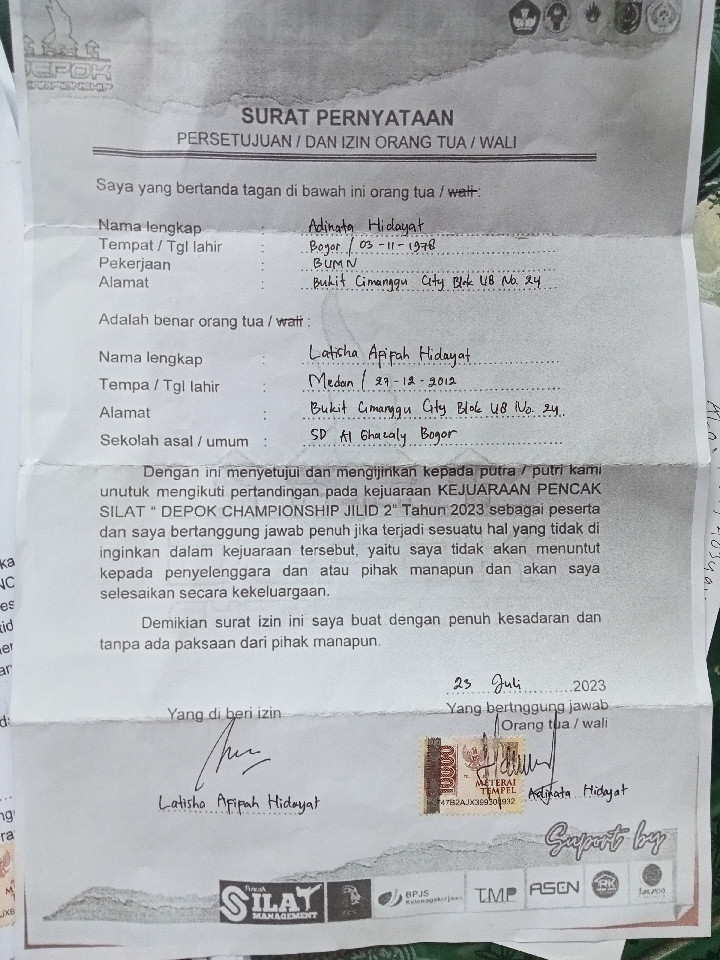 DEPOK
CHAMPIONSHIP
SURAT PERNYATAAN
PERSETUJUAN / DAN IZIN ORANG TUA / WALI
Saya yang bertanda tagan di bawah ini orang tua / wali :
Nama lengkap : Adinata Hidayat
Tempat / Tgl lahir : Bogor / 03-11-1978
Pekerjaan : BUMN
Alamat : Bukit Cimanggu City Blok U8 No. 24
Adalah benar orang tua / wali :
Nama lengkap : Latisha Afifah Hidayat
Tempa / Tgl lahir : Medan / 27-12-2012
Alamat : Bukit Cimanggu City Blok U8 No. 24
Sekolah asal / umum : SD Al Ghazaly Bogor
Dengan ini menyetujui dan mengijinkan kepada putra / putri kami
unutuk mengikuti pertandingan pada kejuaraan KEJUARAAN PENCAK
SILAT " DEPOK CHAMPIONSHIP JILID 2" Tahun 2023 sebagai peserta
dan saya bertanggung jawab penuh jika terjadi sesuatu hal yang tidak di
inginkan dalam kejuaraan tersebut, yaitu saya tidak akan menuntut
kepada penyelenggara dan atau pihak manapun dan akan saya
selesaikan secara kekeluargaan.
Demikian surat izin ini saya buat dengan penuh kesadaran dan
tanpa ada paksaan dari pihak manapun.
23 Juli 2023
Yang di beri izin
Yang bertnggung jawab
Orang tua / wali
10000
METERAI
TEMPEL
Latisha Afifah Hidayat
Adinata Hidayat
Suport by
Pencak
SILAT
MANAGEMENT
BPJS
Ketenagakerjaan
TMP
ASCN
RK